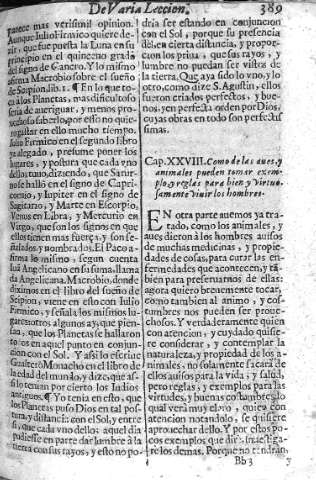 De Varia Leccion. 389
parece mas verisimil opinion.
Aunque Iulio Firmico quiere de-
zir, que fue puesta la Luna en su
principio en el quinzeno grado
del signo de Cancro. Y lo mismo
afirma Macrobio sobre el sueño
de Scipion lib. 1. ¶ En lo que to-
ca a los Planetas, mas dificultoso se-
ria de aueriguar, y menos pro-
uechoso saberlo, por esto no quie-
ro gastar en ello mucho tiempo.
Iulio Firmico en el segundo libro
ya alegado, presume poner los
lugares, y postura que cada vno
dellos tuuo, diziendo, que Satur-
no se halló en el signo de Capri-
cornio, y Iupiter en el signo de
Sagitario, y Marte en Escorpio,
Venus en Libra, y Mercurio en
Virgo, que son los signos en que
ellos tienen mas fuerça, y son se-
ñalados y nombrados. El Paco a-
firma lo mismo, segun cuenta
lui Angelicano en su suma, llama
da Angelicana. Macrobio, donde
diximos en el libro del sueño de
Scipion, viene en esto con Iulio
Firmico, y señala los mismos lu-
gares: otros algunos ay, que pien-
san, que los Planetas se hallaron
todos en aquel punto en conjun-
cion con el Sol. Y assi lo escriue
Gualtero Monacho en el libro de
la edad del mundo, y dize, que as-
si lo tenian por cierto los Indios
antiguos. ¶ Yo tenia en esto, que
los Planetas puso Dios en tal pos-
tura, y distancia con el Sol, y entre
si, que cada vno dellos aquel dia
pudiesse en parte dar lumbre a la
tierra con sus rayos, y esto no po-
dria ser estando en conjuncion
con el Sol, porque su presencia
es en cierta distancia, y propor-
cion los priua, que sus rayos, y
lumbre no puedan ser vistos de
la tierra. Que aya sido lo vno, y lo
otro, como dize S. Agustin, ellos
fueron criados perfectos, y bue-
nos, y en perfecta orden por Dios,
cuyas obras en todo son perfectis
simas.
Cap. XXVIII. Como de las aues, y
animales pueden tomar exem-
plo, y reglas para bien y virtuo-
samente viuir los hombres.
EN otra parte auemos ya tra-
tado, como los animales, y
aues dieron a los hombres auisos
de muchas medicinas, y propie-
dades de cosas, para curar las en-
fermedades que acontecen, y tā-
bien para preseruarnos de ellas:
agora quiero breuemente tocar,
como tambien al animo, y cos-
tumbres nos pueden ser proue-
chosos. Y verdaderamente quien
con atencion, y cuydado quisie-
re considerar, y contemplar la
naturaleza, y propiedad de los a-
nimales, no solamente sacará de
ellos auisos para la vida, y salud,
pero reglas, y exemplos para las
virtudes, y buenas costumbres: lo
qual verá muy claro, quien con
atencion notandolo, se quisiere
aprouechar dello. Y por estos po-
cos exemplos que diré, inuestiga-
re los demas. Porque no tendrán,
Bb 3 y